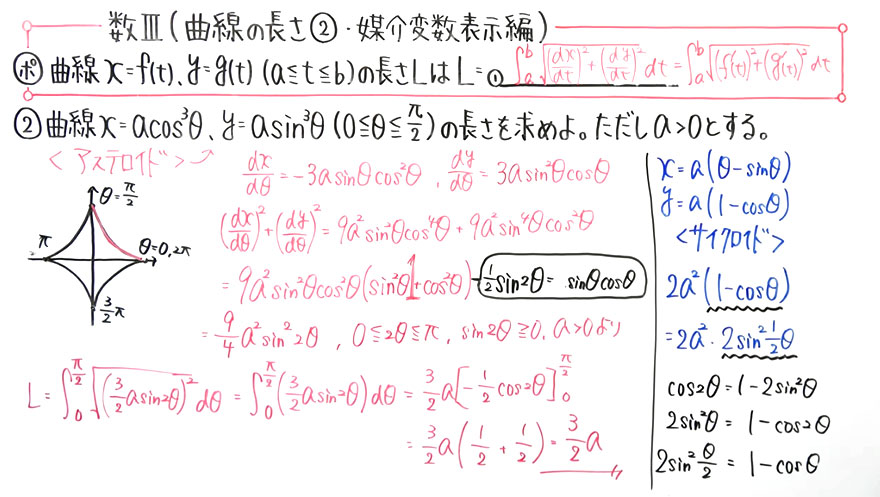 数Ⅲ(曲線の長さ②・媒介変数表示編)
ポ 曲線 x=f(t)、y=g(t) (a≦t≦b)の長さLは L=① ∫_a^b √((dx/dt)²+(dy/dt)²) dt = ∫_a^b √((f'(t))²+(g'(t))²) dt
② 曲線 x=acos³θ、y=asin³θ (0≦θ≦π/2)の長さを求めよ。ただし a>0とする。
<アステロイド>
θ=π/2
π
θ=0,2π
3/2π
dx/dθ=-3asinθcos²θ , dy/dθ=3asin²θcosθ
(dx/dθ)²+(dy/dθ)²=9a²sin²θcos⁴θ+9a²sin⁴θcos²θ
=9a²sin²θcos²θ(sin²θ+cos²θ) 1
1/2sin2θ= sinθcosθ
=9/4a²sin²2θ , 0≦2θ≦π, sin2θ≧0, a>0より
L=∫_0^{π/2} √((3/2asin2θ)²) dθ = ∫_0^{π/2}(3/2asin2θ)dθ = 3/2a[-1/2cos2θ]_0^{π/2}
=3/2a(1/2+1/2)=3/2a
x=a(θ-sinθ)
y=a(1-cosθ)
<サイクロイド>
2a²(1-cosθ)
=2a²・2sin²1/2θ
cos2θ=1-2sin²θ
2sin²θ=1-cos2θ
2sin²θ/2=1-cosθ